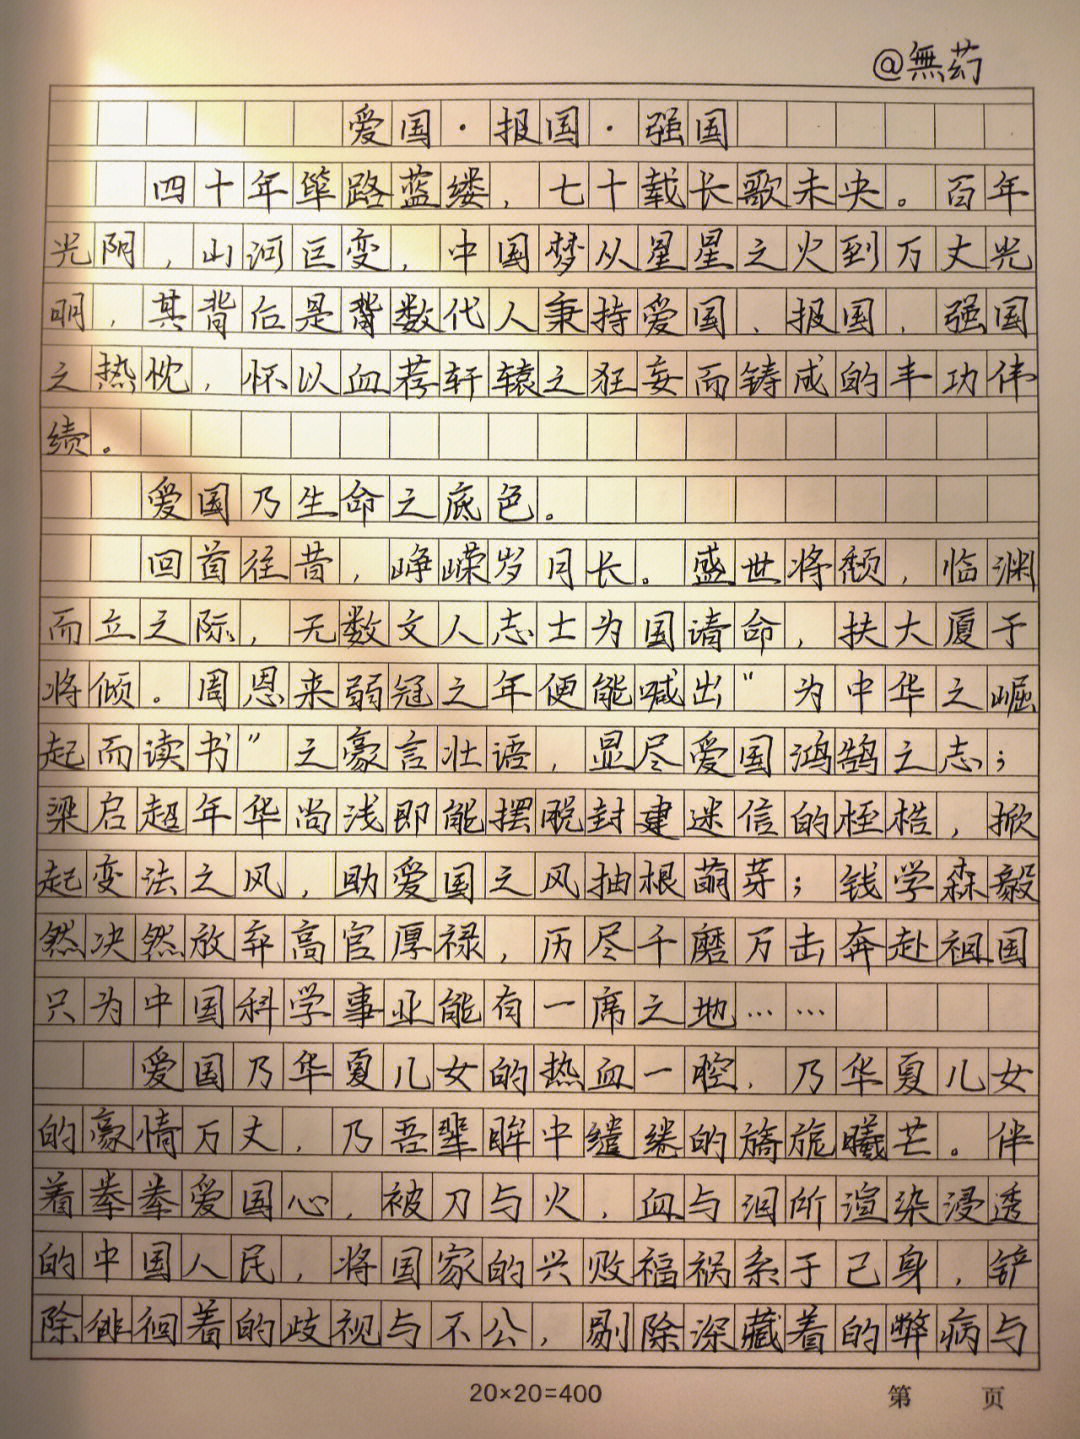 @無药
爱国·报国·强国
四十年筚路蓝缕，七十载长歌未央。百年
光阴，山河巨变，中国梦从星星之火到万丈光
明，其背后是背数代人秉持爱国、报国、强国
之热忱，怀以血荐轩辕之狂妄而铸成的丰功伟
绩。
爱国乃生命之底色。
回首往昔，峥嵘岁月长。盛世将颓，临渊
而立之际，无数文人志士为国请命，扶大厦于
将倾。周恩来弱冠之年便能喊出"为中华之崛
起而读书"之豪言壮语，显尽爱国鸿鹄之志；
梁启超年华尚浅即能摆脱封建迷信的桎梏，掀
起变法之风，助爱国之风抽根萌芽；钱学森毅
然决然放弃高官厚禄，历尽千磨万击奔赴祖国
只为中国科学事业能有一席之地……
爱国乃华夏儿女的热血一腔，乃华夏儿女
的豪情万丈，乃吾辈眸中缱绻的旖旎曦芒。伴
着拳拳爱国心，被刀与火，血与泪所渲染浸透
的中国人民，将国家的兴败福祸系于己身，铲
除徘徊着的歧视与不公，剔除深藏着的弊病与
20×20=400
第 页